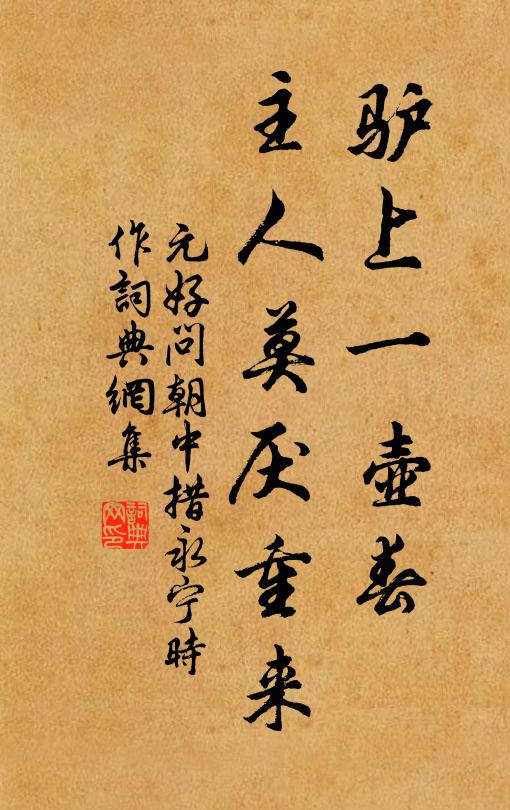 驴上一壶春
主人莫厌重来
元好问朝中措永宁时
作词典網集
詞典网印